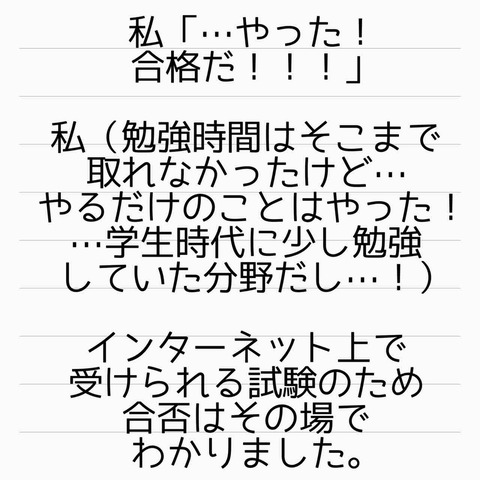 私「…やった！
合格だ！！！」
私（勉強時間はそこまで
取れなかったけど…
やるだけのことはやった！
…学生時代に少し勉強
していた分野だし…！）
インターネット上で
受けられる試験のため
合否はその場で
わかりました。